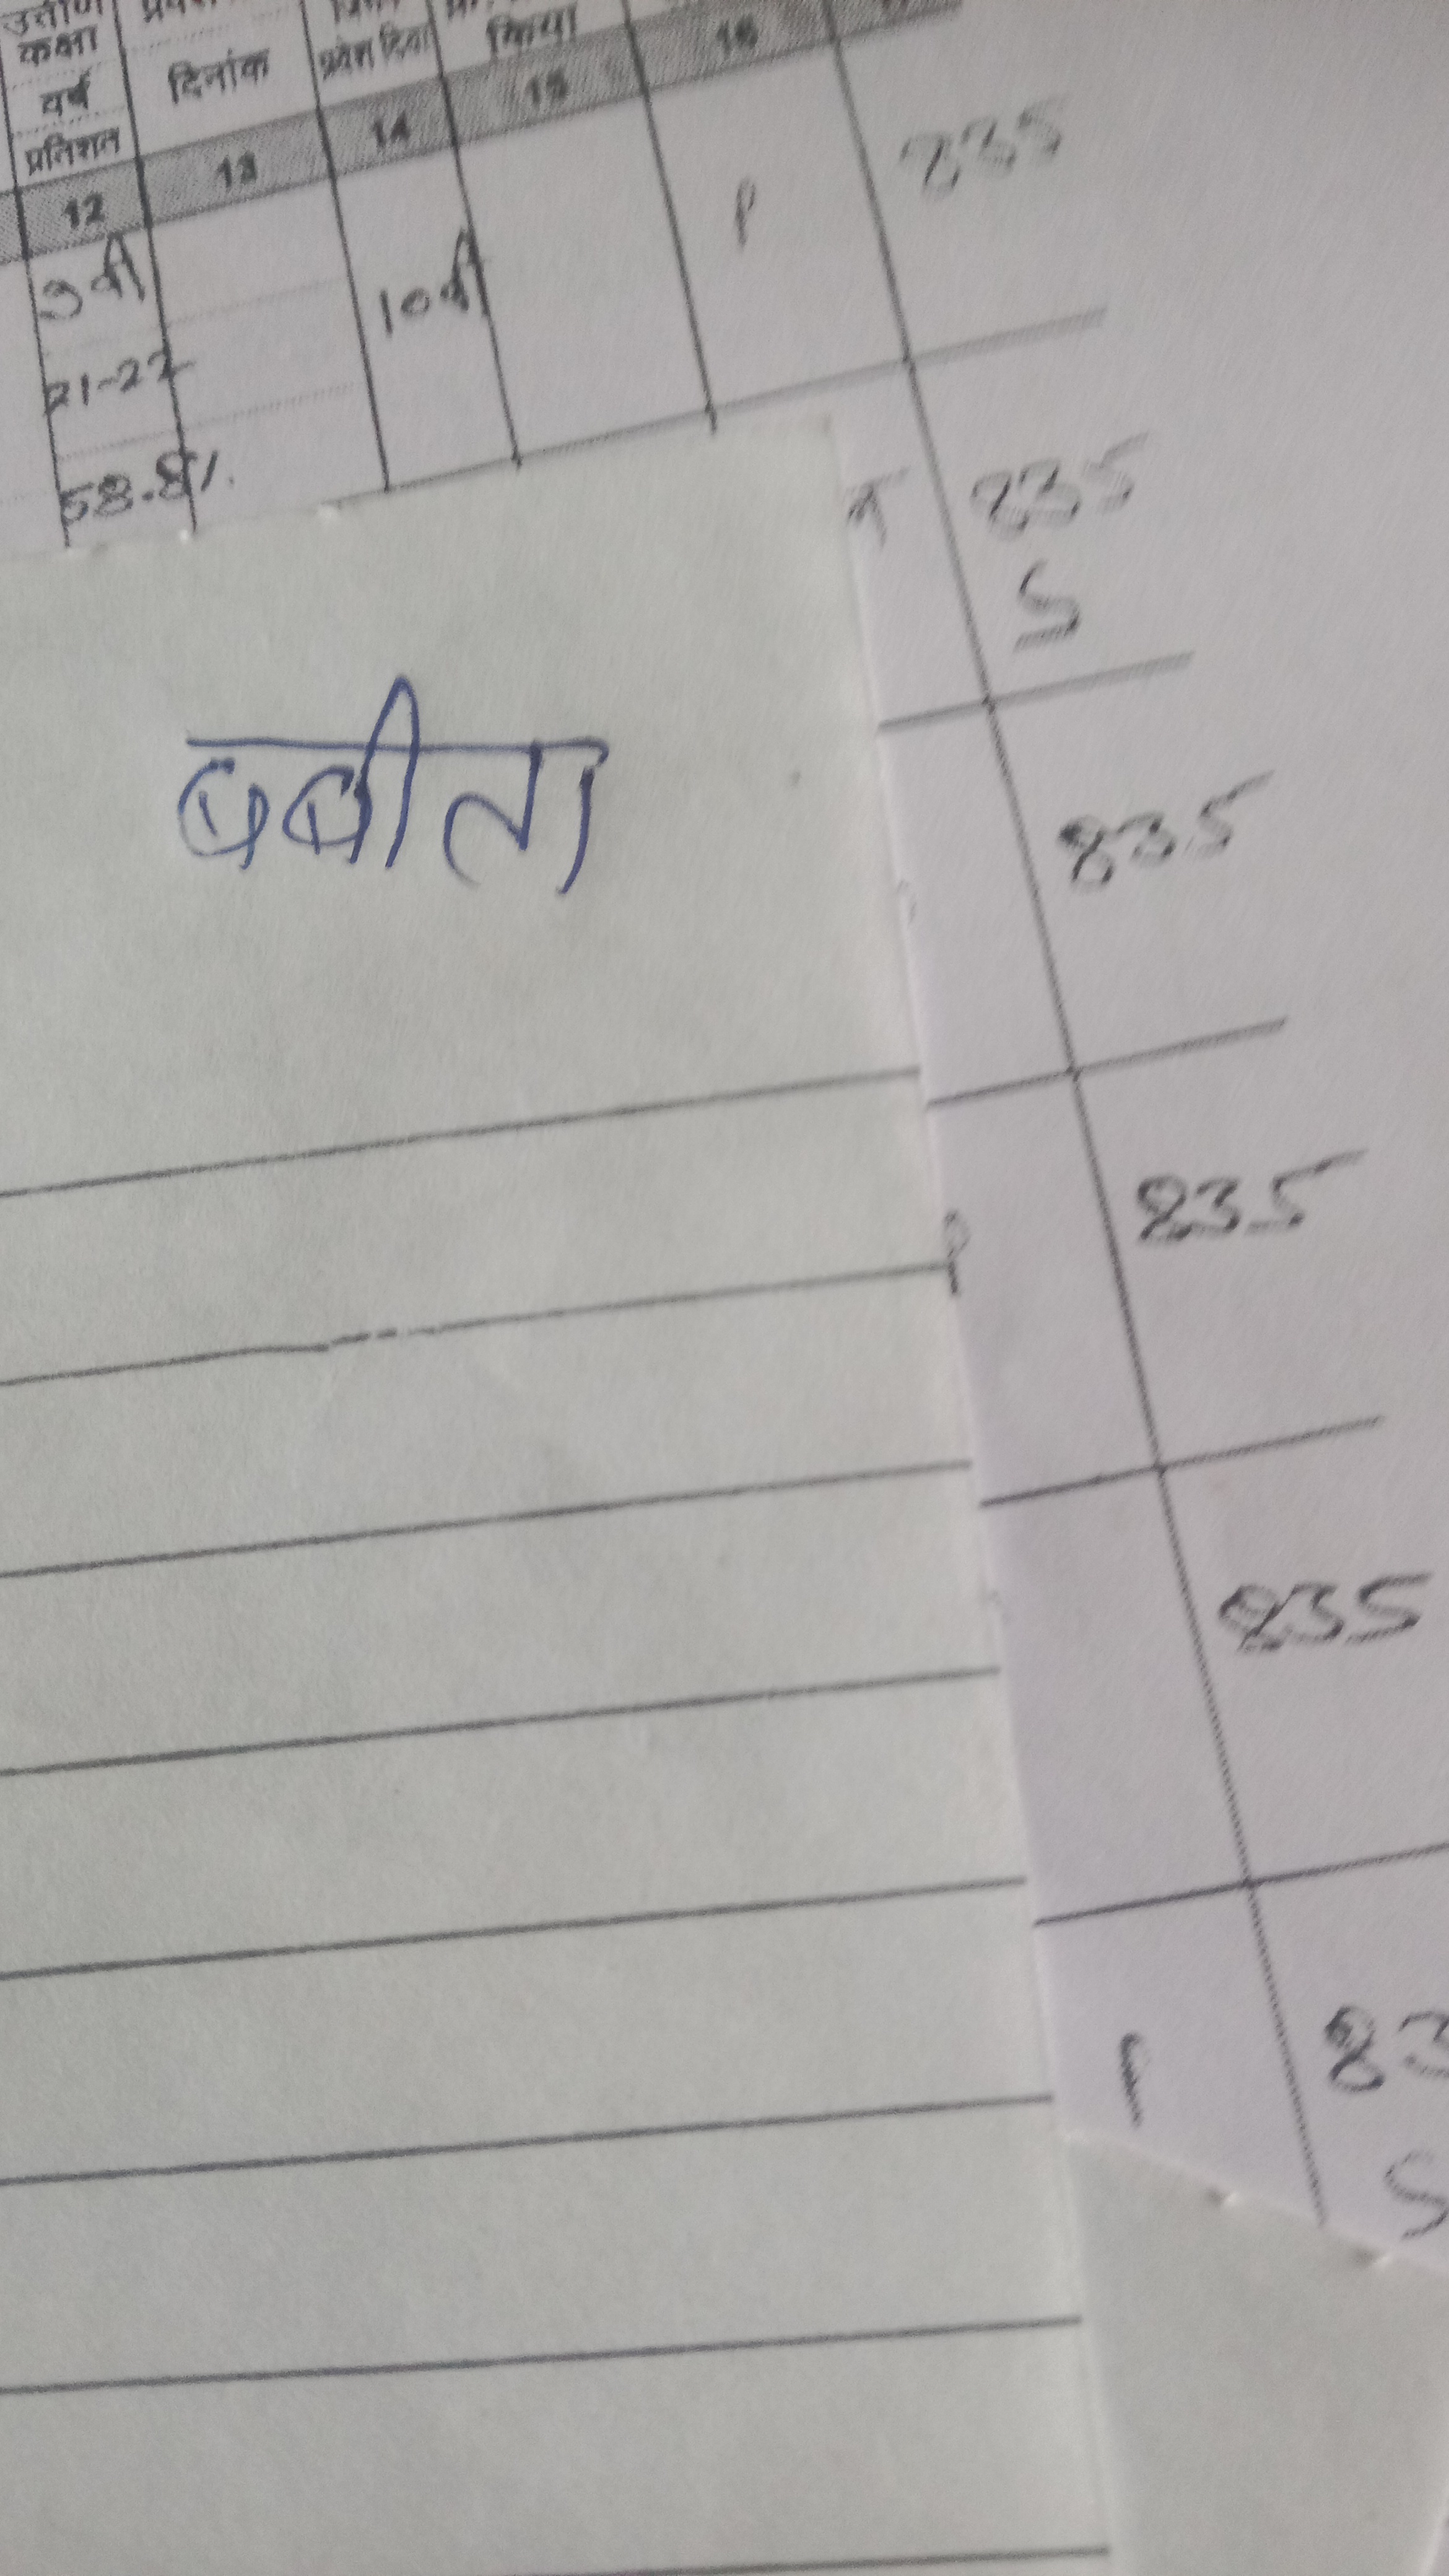 उत्तीर्ण
कक्षा
वर्ष
प्रतिशत
दिनांक
प्रवेश दिया
किया
12 13 14 15 16
9वी 10वी P 835
21-22
58.8%
835
S
बबीता
835
835
835
83
S